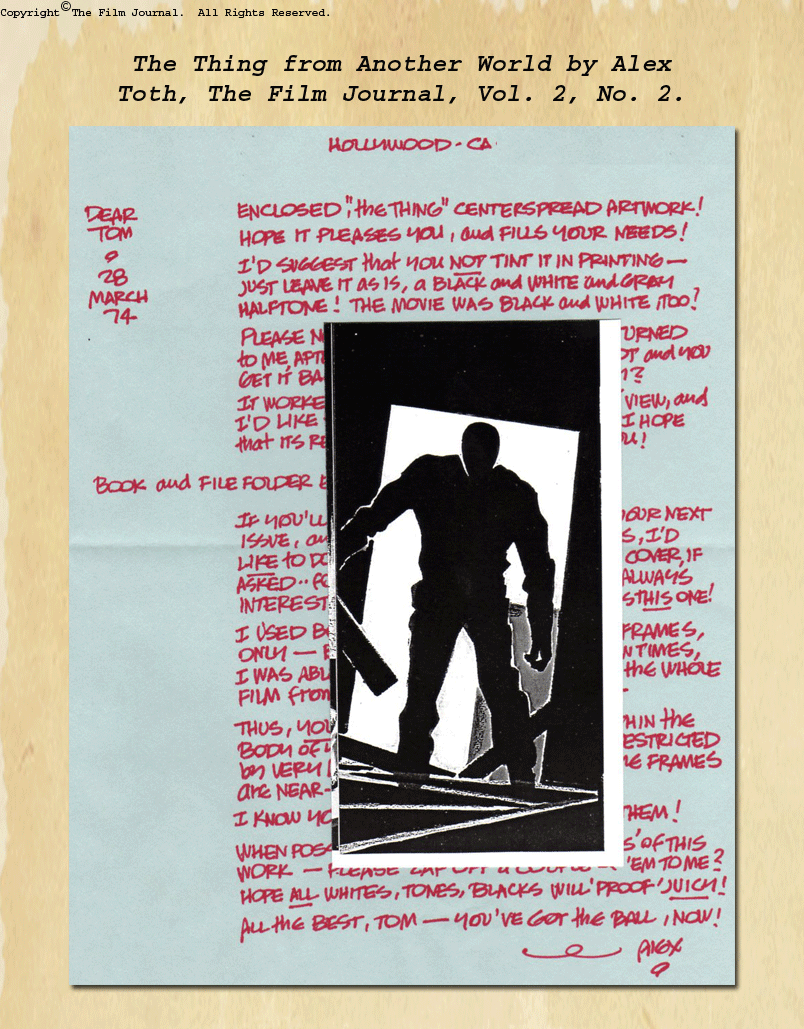 Copyright©The Film Journal. All Rights Reserved.
The Thing from Another World by Alex
Toth, The Film Journal, Vol. 2, No. 2.
HOLLYWOOD - CA
DEAR
TOM
28
MARCH
74
ENCLOSED, "the THING" CENTERSPREAD ARTWORK!
HOPE IT PLEASES YOU, and FILLS YOUR NEEDS!
I'D SUGGEST that YOU NOT TINT IT IN PRINTING —
JUST LEAVE IT AS IS, a BLACK and WHITE and GRAY
HALFTONE! THE MOVIE WAS BLACK and WHITE, TOO?
PLEASE N URNED
to ME, AFT OT and YOU
GET IT BA ?
IT WORKE VIEW, and
I'D LIKE I HOPE
that ITS RE U!
BOOK and FILE FOLDER
IF YOU'LL OUR NEXT
ISSUE, S, I'D
LIKE TO DO COVER, IF
ASKED ·· FO ALWAYS
INTEREST S THIS ONE!
I USED B FRAMES,
ONLY — N TIMES,
I WAS ABL the WHOLE
FILM from
THUS, YOU HIN the
BODY OF ESTRICTED
by VERY E FRAMES
are NEAR-
I KNOW YO THEM!
WHEN POSS S' OF THIS
WORK — PLEASE ZAP OFF a COUPLE 'EM TO ME?
HOPE ALL WHITES, TONES, BLACKS WILL 'PROOF' JUICY!
ALL the BEST, TOM — YOU'VE GOT the BALL, NOW!
ALEX